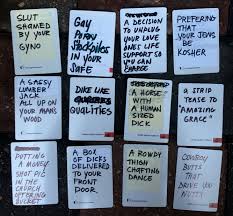 SLUT
SHAMED BY
YOUR
GYNO
GAY
PORN
STOCKPILES
IN YOUR
SAFE
A DECISION
TO UNPLUG
YOUR LOVE
ONES LIFE
SUPPORT SO
YOU CAN
CHARGE
PREFERING
THAT YOUR
JEWS BE
KOSHER
A SASSY
LUMBER
JACK
ALL UP ON
YOUR MANS
WOOD
DIKE LIKE
QUALITIES
A HORSE
WITH A
HUMAN
SIZED
DICK
A STRIP
TEASE TO
"AMAZING
GRACE"
PUTTING A
MONEY
SHOT PIC
IN THE
CHURCH
OFFERING
BUCKET
A BOX
OF DICKS
DELIVERED
TO YOUR
FRONT
DOOR
A ROWDY
THIGH
CHAFTING
DANCE
COWBOY
BUTTS
THAT
DRIVE YOU
NUTTY